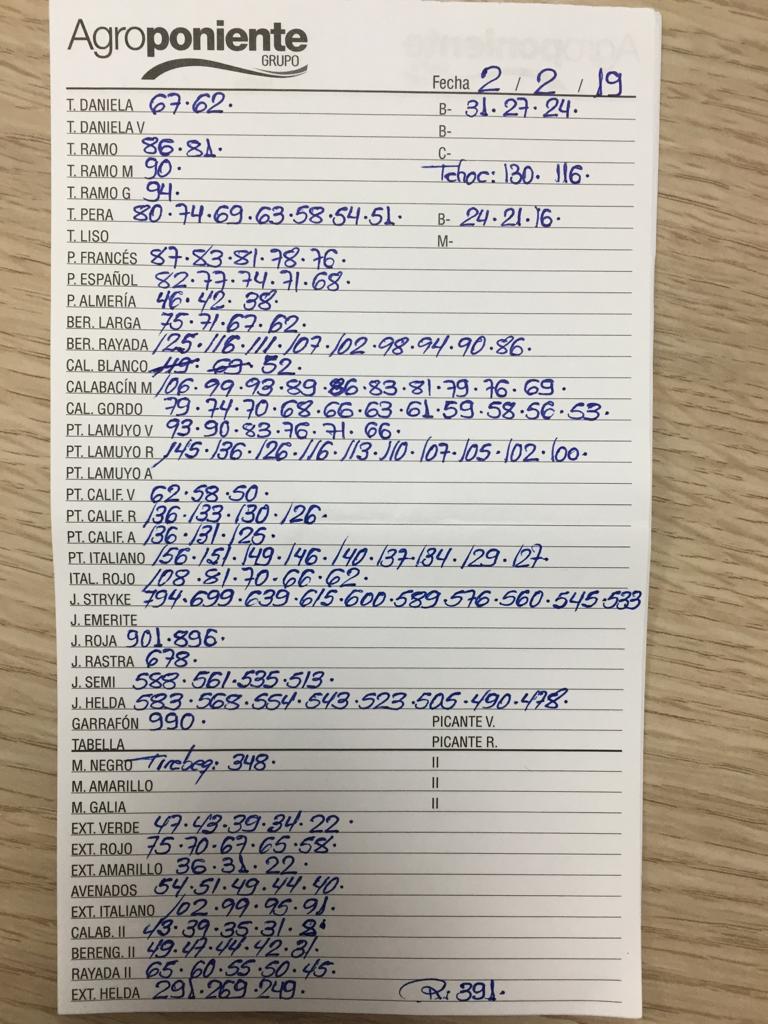 Agroponiente
GRUPO
Fecha 2 / 2 / 19
T. DANIELA 67·62· B- 31·27·24·
T. DANIELA V B-
T. RAMO 86·81· C-
T. RAMO M 90· Tchoc: 130· 116·
T. RAMO G 94·
T. PERA 80·74·69·63·58·54·51· B- 24·21·16·
T. LISO M-
P. FRANCÉS 87·83·81·78·76·
P. ESPAÑOL 82·77·74·71·68·
P. ALMERÍA 46·42·38·
BER. LARGA 75·71·67·62·
BER. RAYADA 125·116·111·107·102·98·94·90·86·
CAL. BLANCO 52·
CALABACÍN M 106·99·93·89·86·83·81·79·76·69·
CAL. GORDO 79·74·70·68·66·63·61·59·58·56·53·
PT. LAMUYO V 93·90·83·76·71·66·
PT. LAMUYO R 145·136·126·116·113·110·107·105·102·100·
PT. LAMUYO A
PT. CALIF. V 62·58·50·
PT. CALIF. R 136·133·130·126·
PT. CALIF. A 136·131·125·
PT. ITALIANO 156·151·149·146·140·137·134·129·127·
ITAL. ROJO 108·81·70·66·62·
J. STRYKE 794·699·639·615·600·589·576·560·545·533
J. EMERITE
J. ROJA 901·896·
J. RASTRA 678·
J. SEMI 588·561·535·513·
J. HELDA 583·568·554·543·523·505·490·478·
GARRAFÓN 990· PICANTE V.
TABELLA PICANTE R.
M. NEGRO Tirabeg: 348· II
M. AMARILLO II
M. GALIA II
EXT. VERDE 47·43·39·34·22·
EXT. ROJO 75·70·67·65·58·
EXT. AMARILLO 36·31·22·
AVENADOS 54·51·49·44·40·
EXT. ITALIANO 102·99·95·91·
CALAB. II 43·39·35·31·
BERENG. II 49·47·44·42·31·
RAYADA II 65·60·55·50·45·
EXT. HELDA 291·269·249· R: 391·